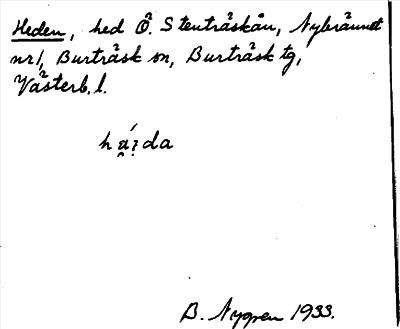 Heden, hed Ö. Stenträskån, Nybrännet
nr 1, Burträsk sn, Burträsk tg,
Västerb. l.
B. Nygren 1933.